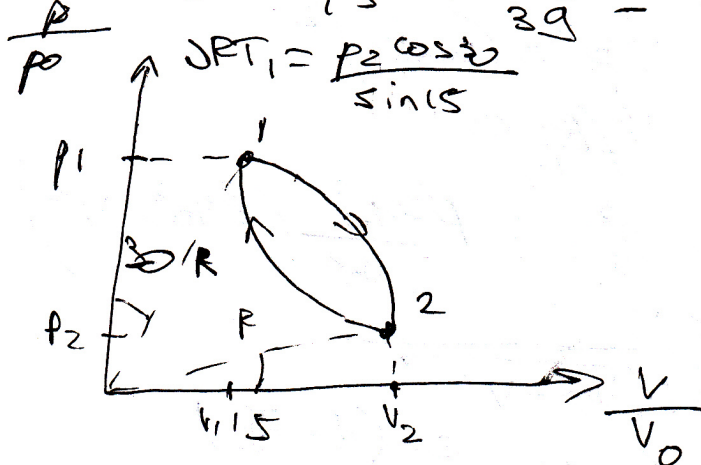 39 -
p
p0
νRT₁ = p₂ cos30
sin15
1
p1
30 R
2
p2
R
V₁ 15
V₂
V
V₀